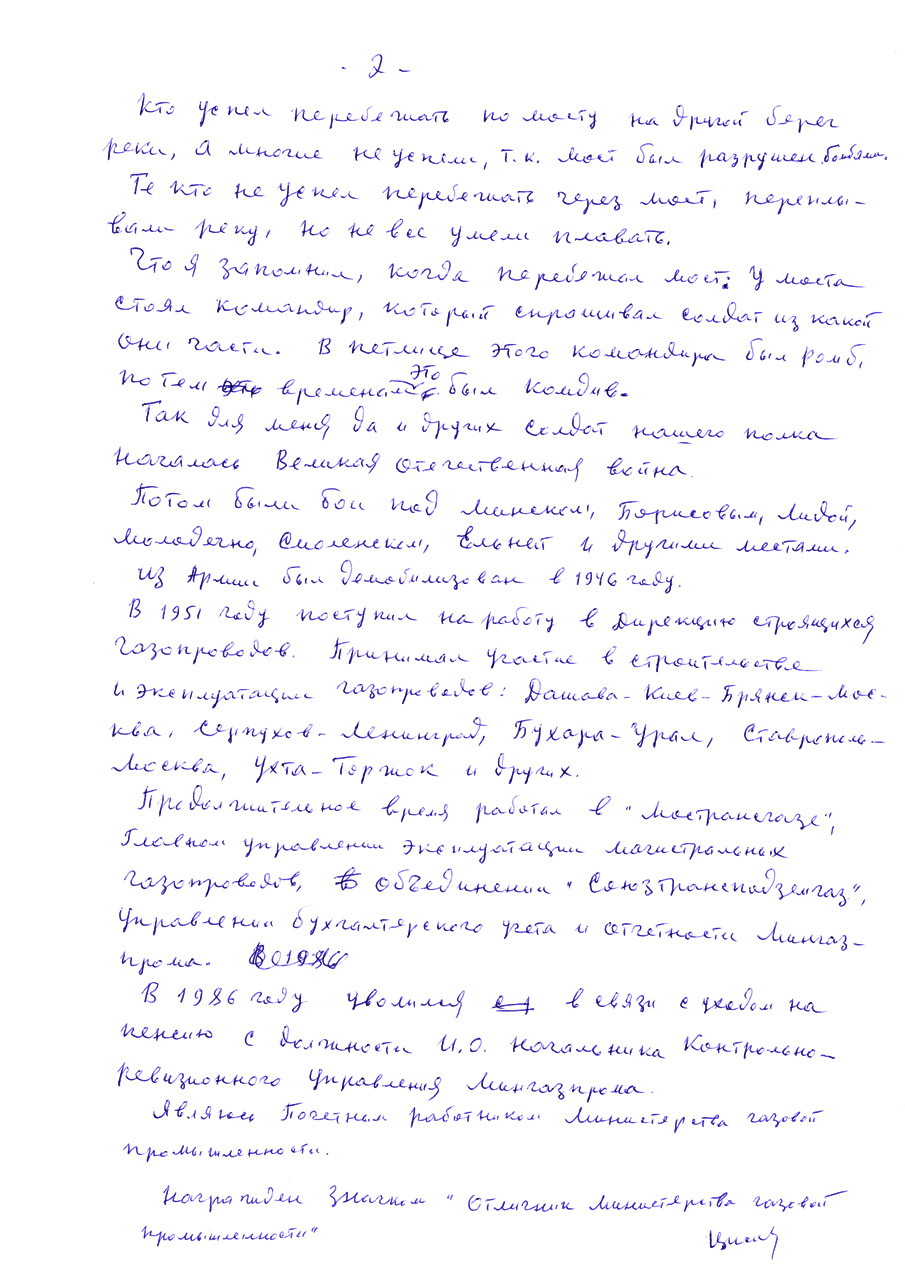 - 2 -
Кто успел перебежать по мосту на другой берег
реки, а многие не успели, т.к. мост был разрушен бомбами.
Те кто не успел перебежать через мост, переплы-
вали реку, но не все умели плавать.
Что я запомнил, когда перебежал мост: У моста
стоял командир, который спрашивал солдат из какой
они части. В петлице этого командира был ромб,
по тем временам это был комдив.
Так для меня да и других солдат нашего полка
началась Великая Отечественная война.
Потом были бои под Минском, Борисовым, Лидой,
Молодечно, Смоленском, Ельней и другими местами.
Из Армии был демобилизован в 1946 году.
В 1951 году поступил на работу в Дирекцию строящихся
газопроводов. Принимал участие в строительстве
и эксплуатации газопроводов: Дашава-Киев-Брянск-Мос-
ква, Серпухов-Ленинград, Бухара-Урал, Ставрополь-
Москва, Ухта-Торжок и других.
Продолжительное время работал в "Мострансгазе",
Главном управлении эксплуатации магистральных
газопроводов, в объединении "Союзтрансподземгаз",
Управлении бухгалтерского учета и отчетности Мингаз-
прома. В 01986
В 1986 году уволился в связи с уходом на
пенсию с должности И.О. начальника Контрольно-
ревизионного Управления Мингазпрома.
Являюсь Почетным работником Министерства газовой
промышленности.
Награжден значком "Отличник Министерства газовой
промышленности"